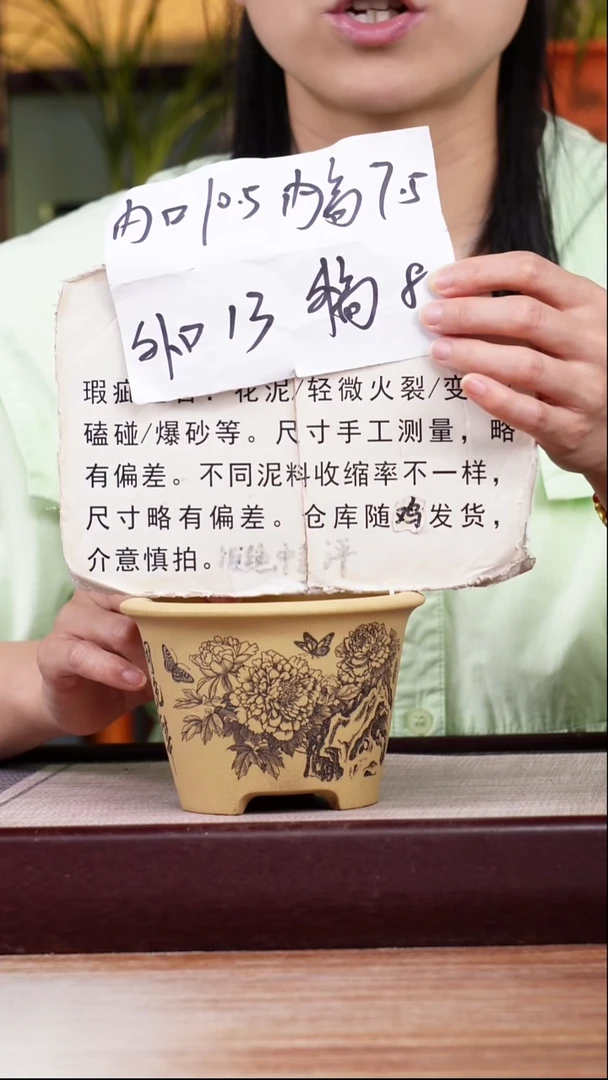 内口10.5 内高7.5
外口13 高8
瑕疵 花泥/轻微火裂/变
磕碰/爆砂等。尺寸手工测量，略
有偏差。不同泥料收缩率不一样，
尺寸略有偏差。仓库随鸡发货，
介意慎拍。